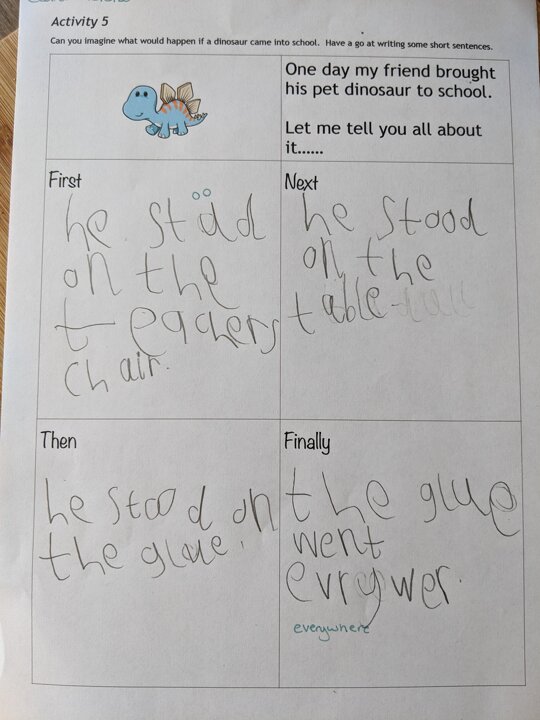 Activity 5
Can you imagine what would happen if a dinosaur came into school. Have a go at writing some short sentences.
One day my friend brought
his pet dinosaur to school.
Let me tell you all about
it......
First
he stad
oo
on the
teachers
chair.
Next
he stood
on the
table
Then
he stood on
the glue.
Finally
the glue
went
evrywer.
everywhere